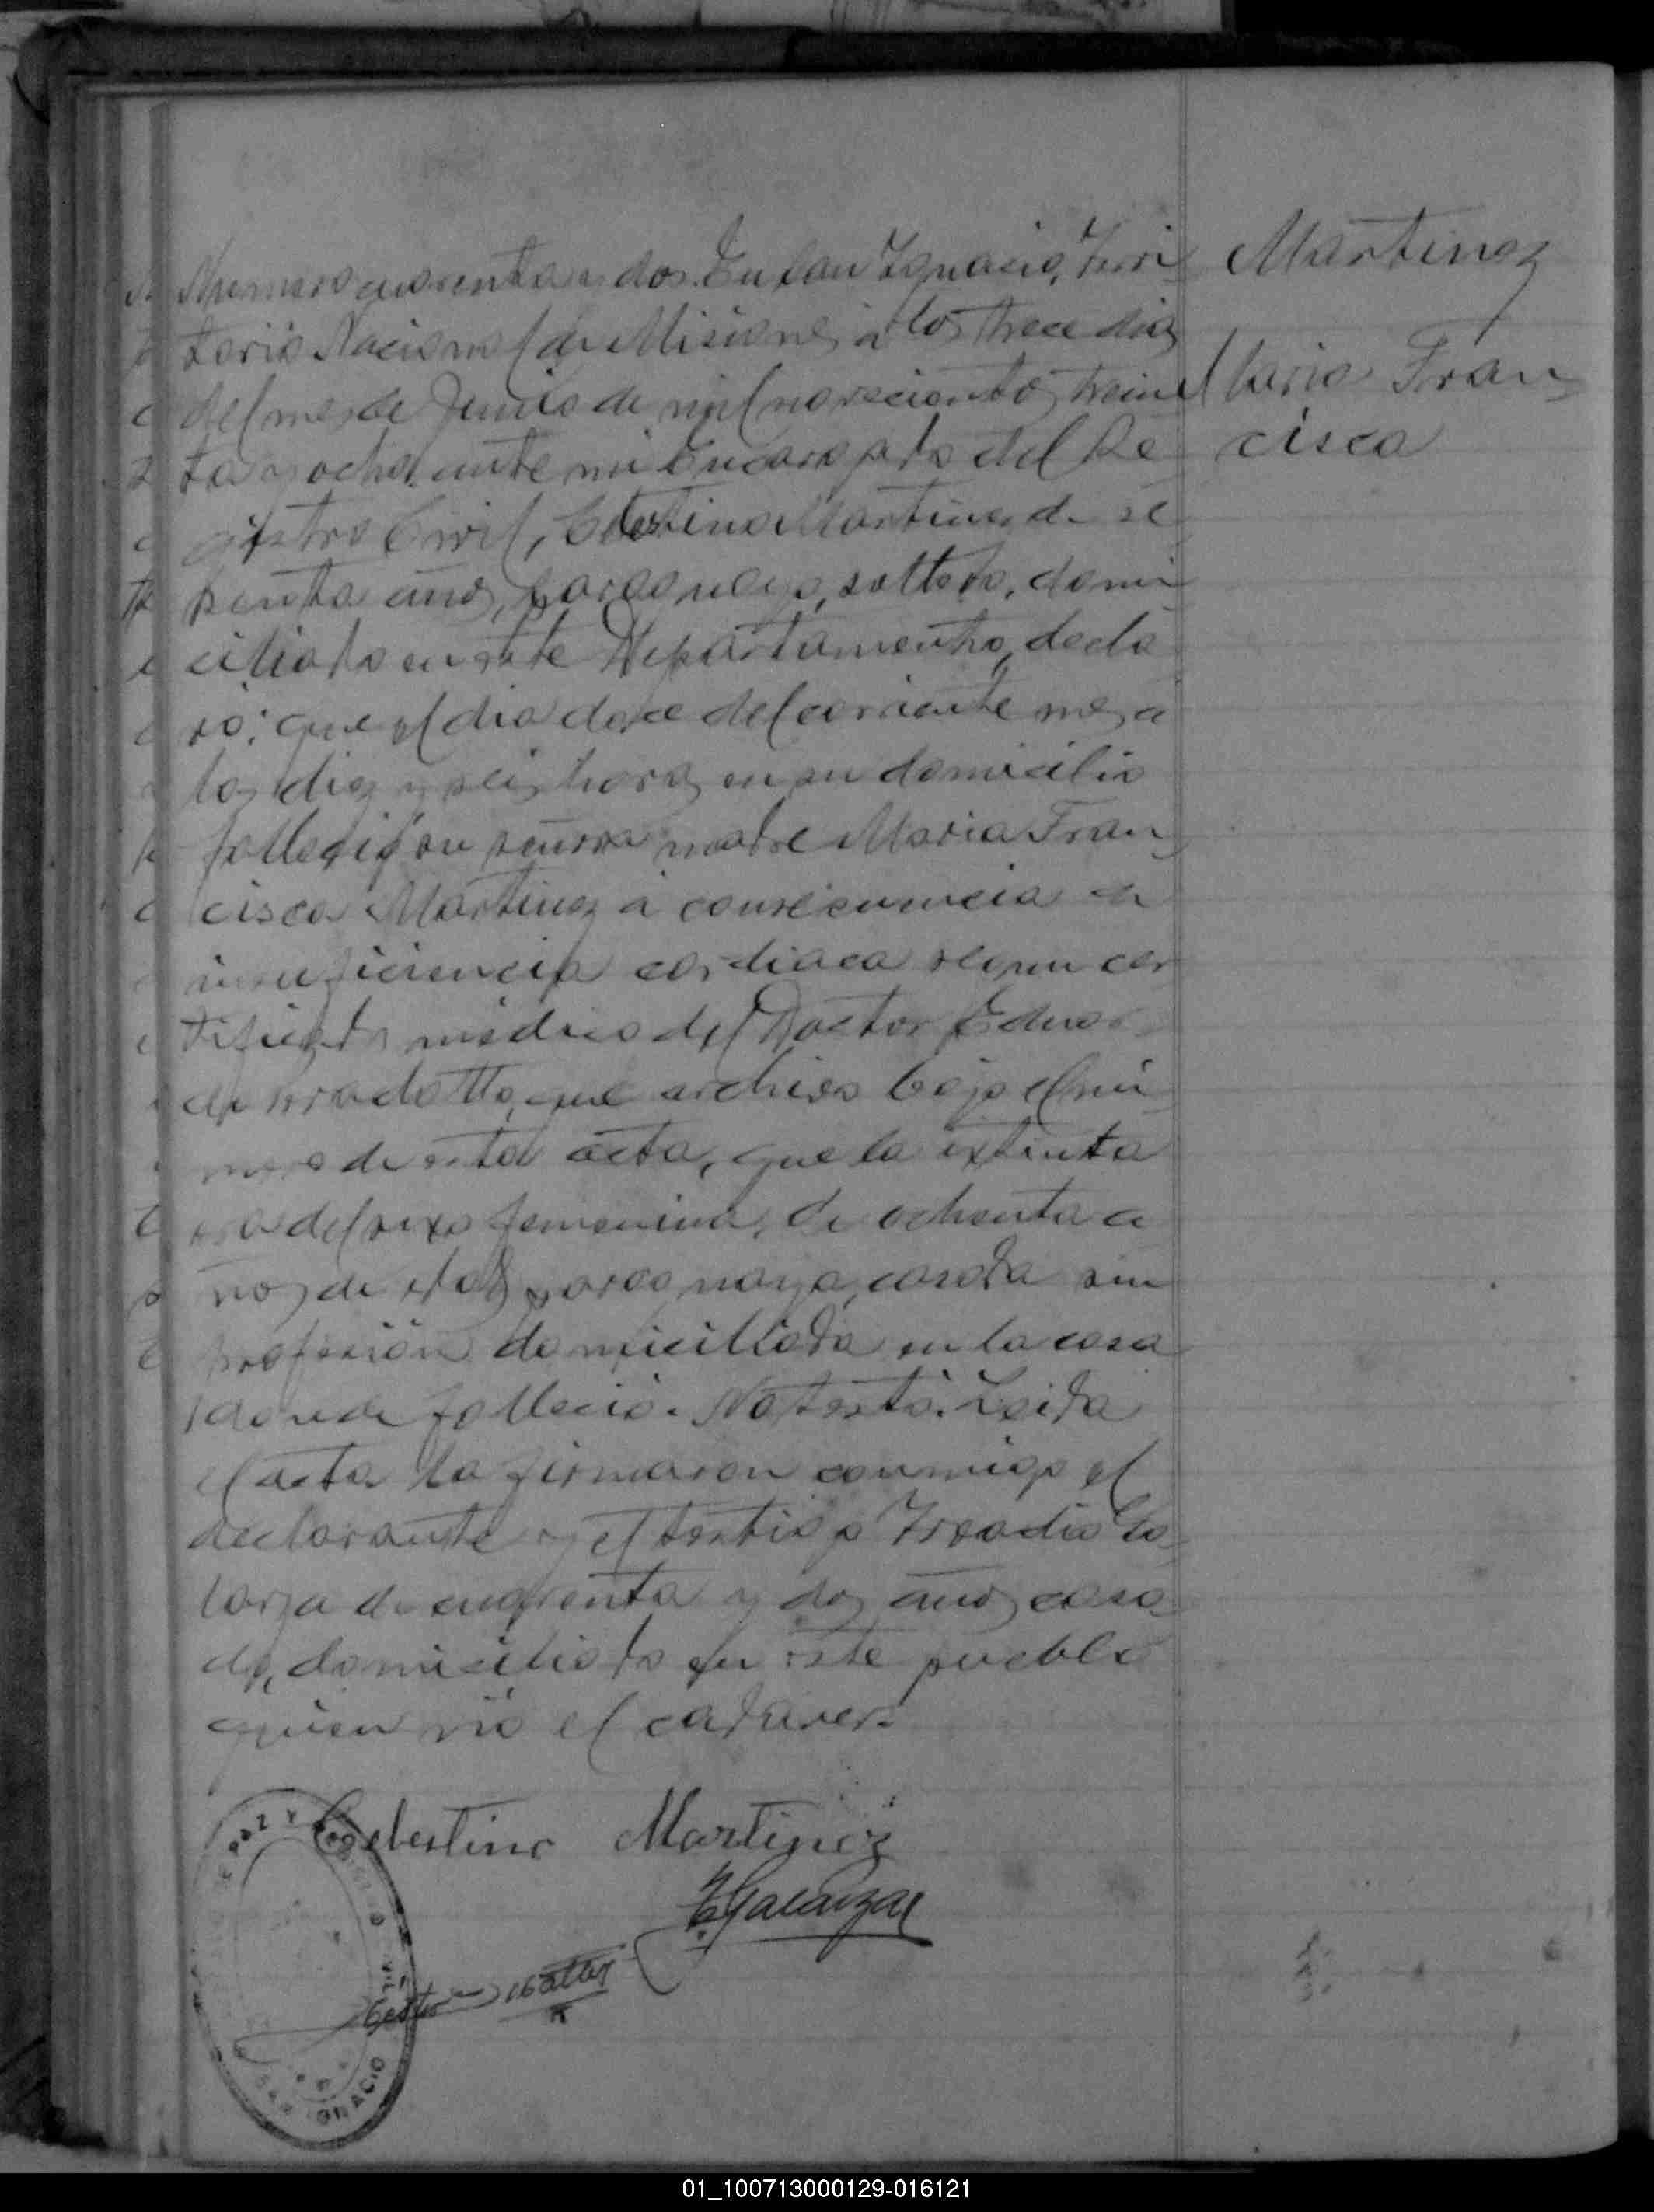 Numero cuarenta y dos. En San Ignacio, Terri
torio Nacional de Misiones a los trece dias
del mes de Junio de mil novecientos trein
ta y ocho, ante mi Encargado del Re
gistro Civil, Celestino Martinez de se
tenta años, paraguayo, soltero, domi
ciliado en este Departamento, decla
ró: que el dia doce del corriente mes a
las diez y seis horas en su domicilio
falleció su señora madre Maria Fran
cisca Martinez a consecuencia de
insuficiencia cardiaca segun cer
tificado médico del Doctor Eduar
do que archivo bajo el nú
mero de esta acta, que la extinta
era del sexo femenino, de ochenta a
ños de edad, paraguaya, casada sin
profesión domiciliada en la casa
donde falleció. No testó. Leida
el acta la firmaron conmigo el
declarante y el testigo Ga
larza de cuarenta y dos años casa
do, domiciliado en este pueblo
quien vió el cadaver.
Celestino Martinez
Galarza
SAN IGNACIO
Martinez
Maria Fran
cisca
01_100713000129-016121